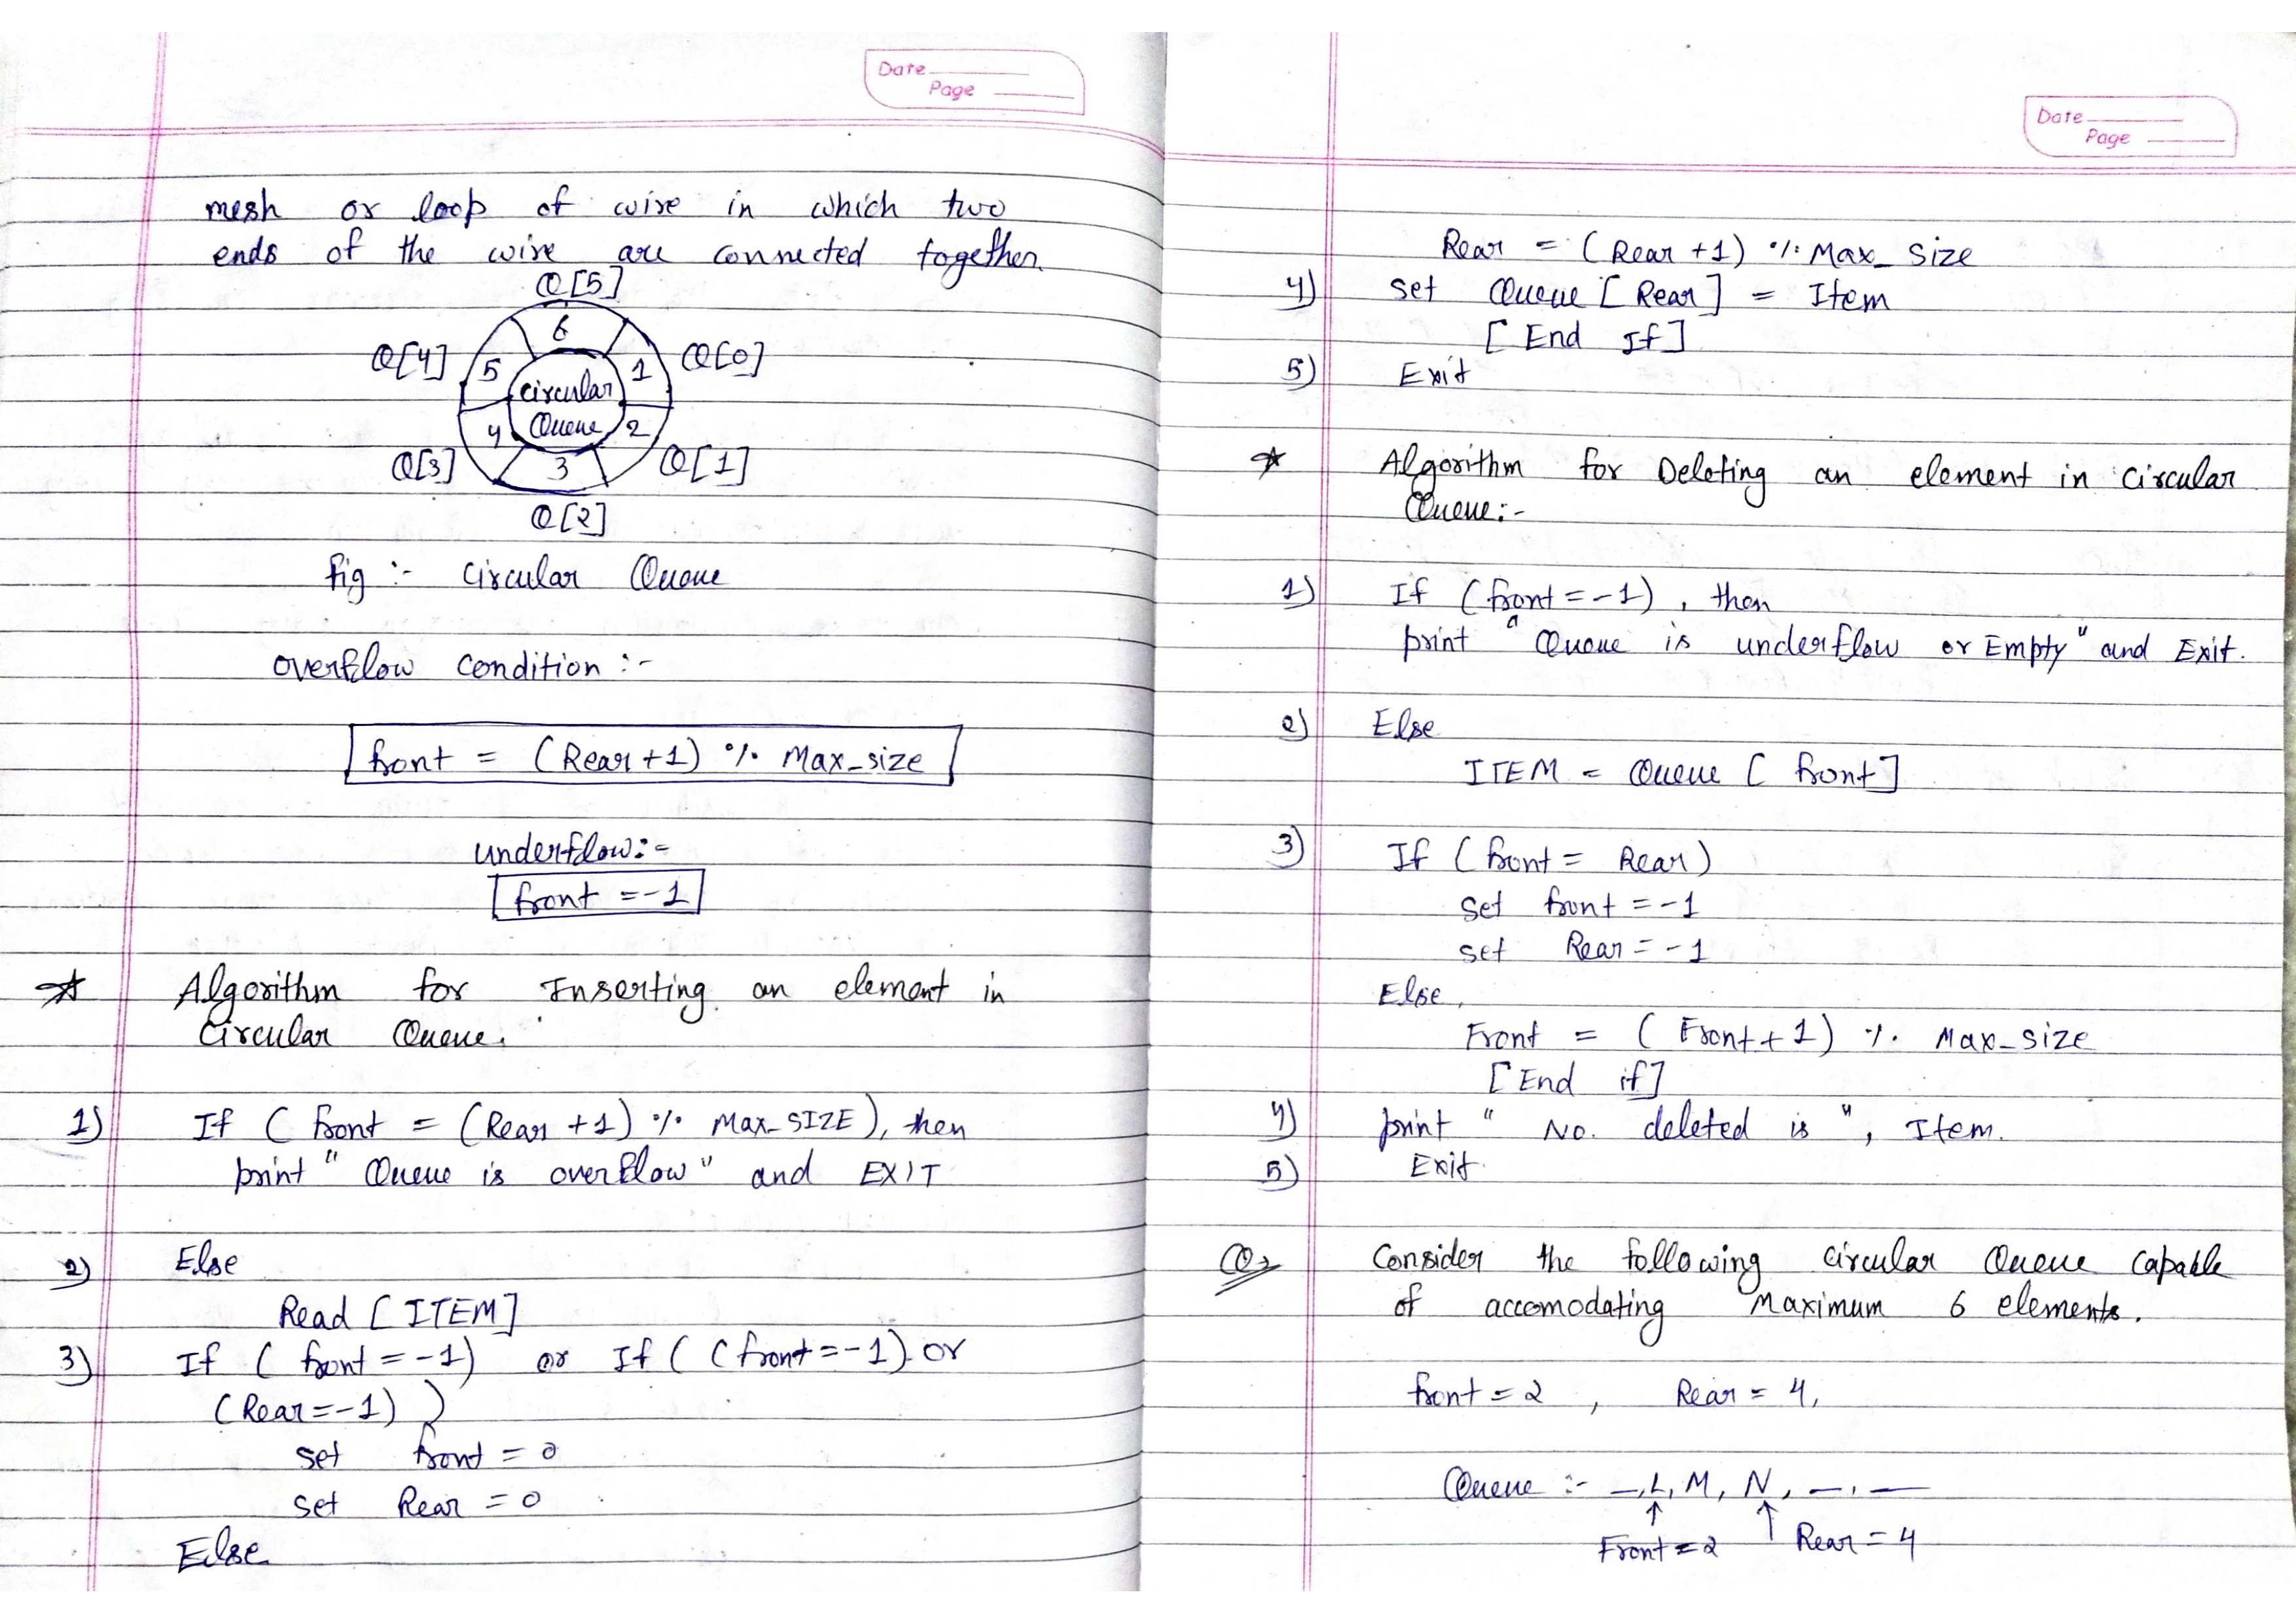 Date
Page
mesh or loop of wire in which two
ends of the wire are connected together.
Q[5]
6
Q[4] 5 1 Q[0]
circular
Queue
4 2
Q[3] 3 Q[1]
Q[2]
fig :- circular Queue
overflow condition :-
front = (Rear+1) % Max_size
underflow:-
front = -1
☆ Algorithm for Inserting an element in
Circular Queue.
1) If ( front = (Rear +1) % Max_SIZE), then
print " Queue is overflow" and EXIT
2) Else
Read [ITEM]
3) If ( front = -1) or If ( ( front = -1) or
(Rear = -1) )
set front = 0
set Rear = 0
Else
Date
Page
Rear = (Rear +1) % Max_Size
4) set Queue [Rear] = Item
[End If]
5) Exit
☆ Algorithm for Deleting an element in Circular
Queue:-
1) If (front = -1), then
print "Queue is underflow or Empty" and Exit.
2) Else
ITEM = Queue [front]
3) If (front = Rear)
set front = -1
set Rear = -1
Else,
Front = (Front+1) % Max_size
[End if]
4) print " No. deleted is ", Item.
5) Exit.
Q, Consider the following circular Queue capable
of accomodating Maximum 6 elements.
front = 2 , Rear = 4,
Queue :- _, L, M, N, _, _
↑ ↑
Front = 2 Rear = 4